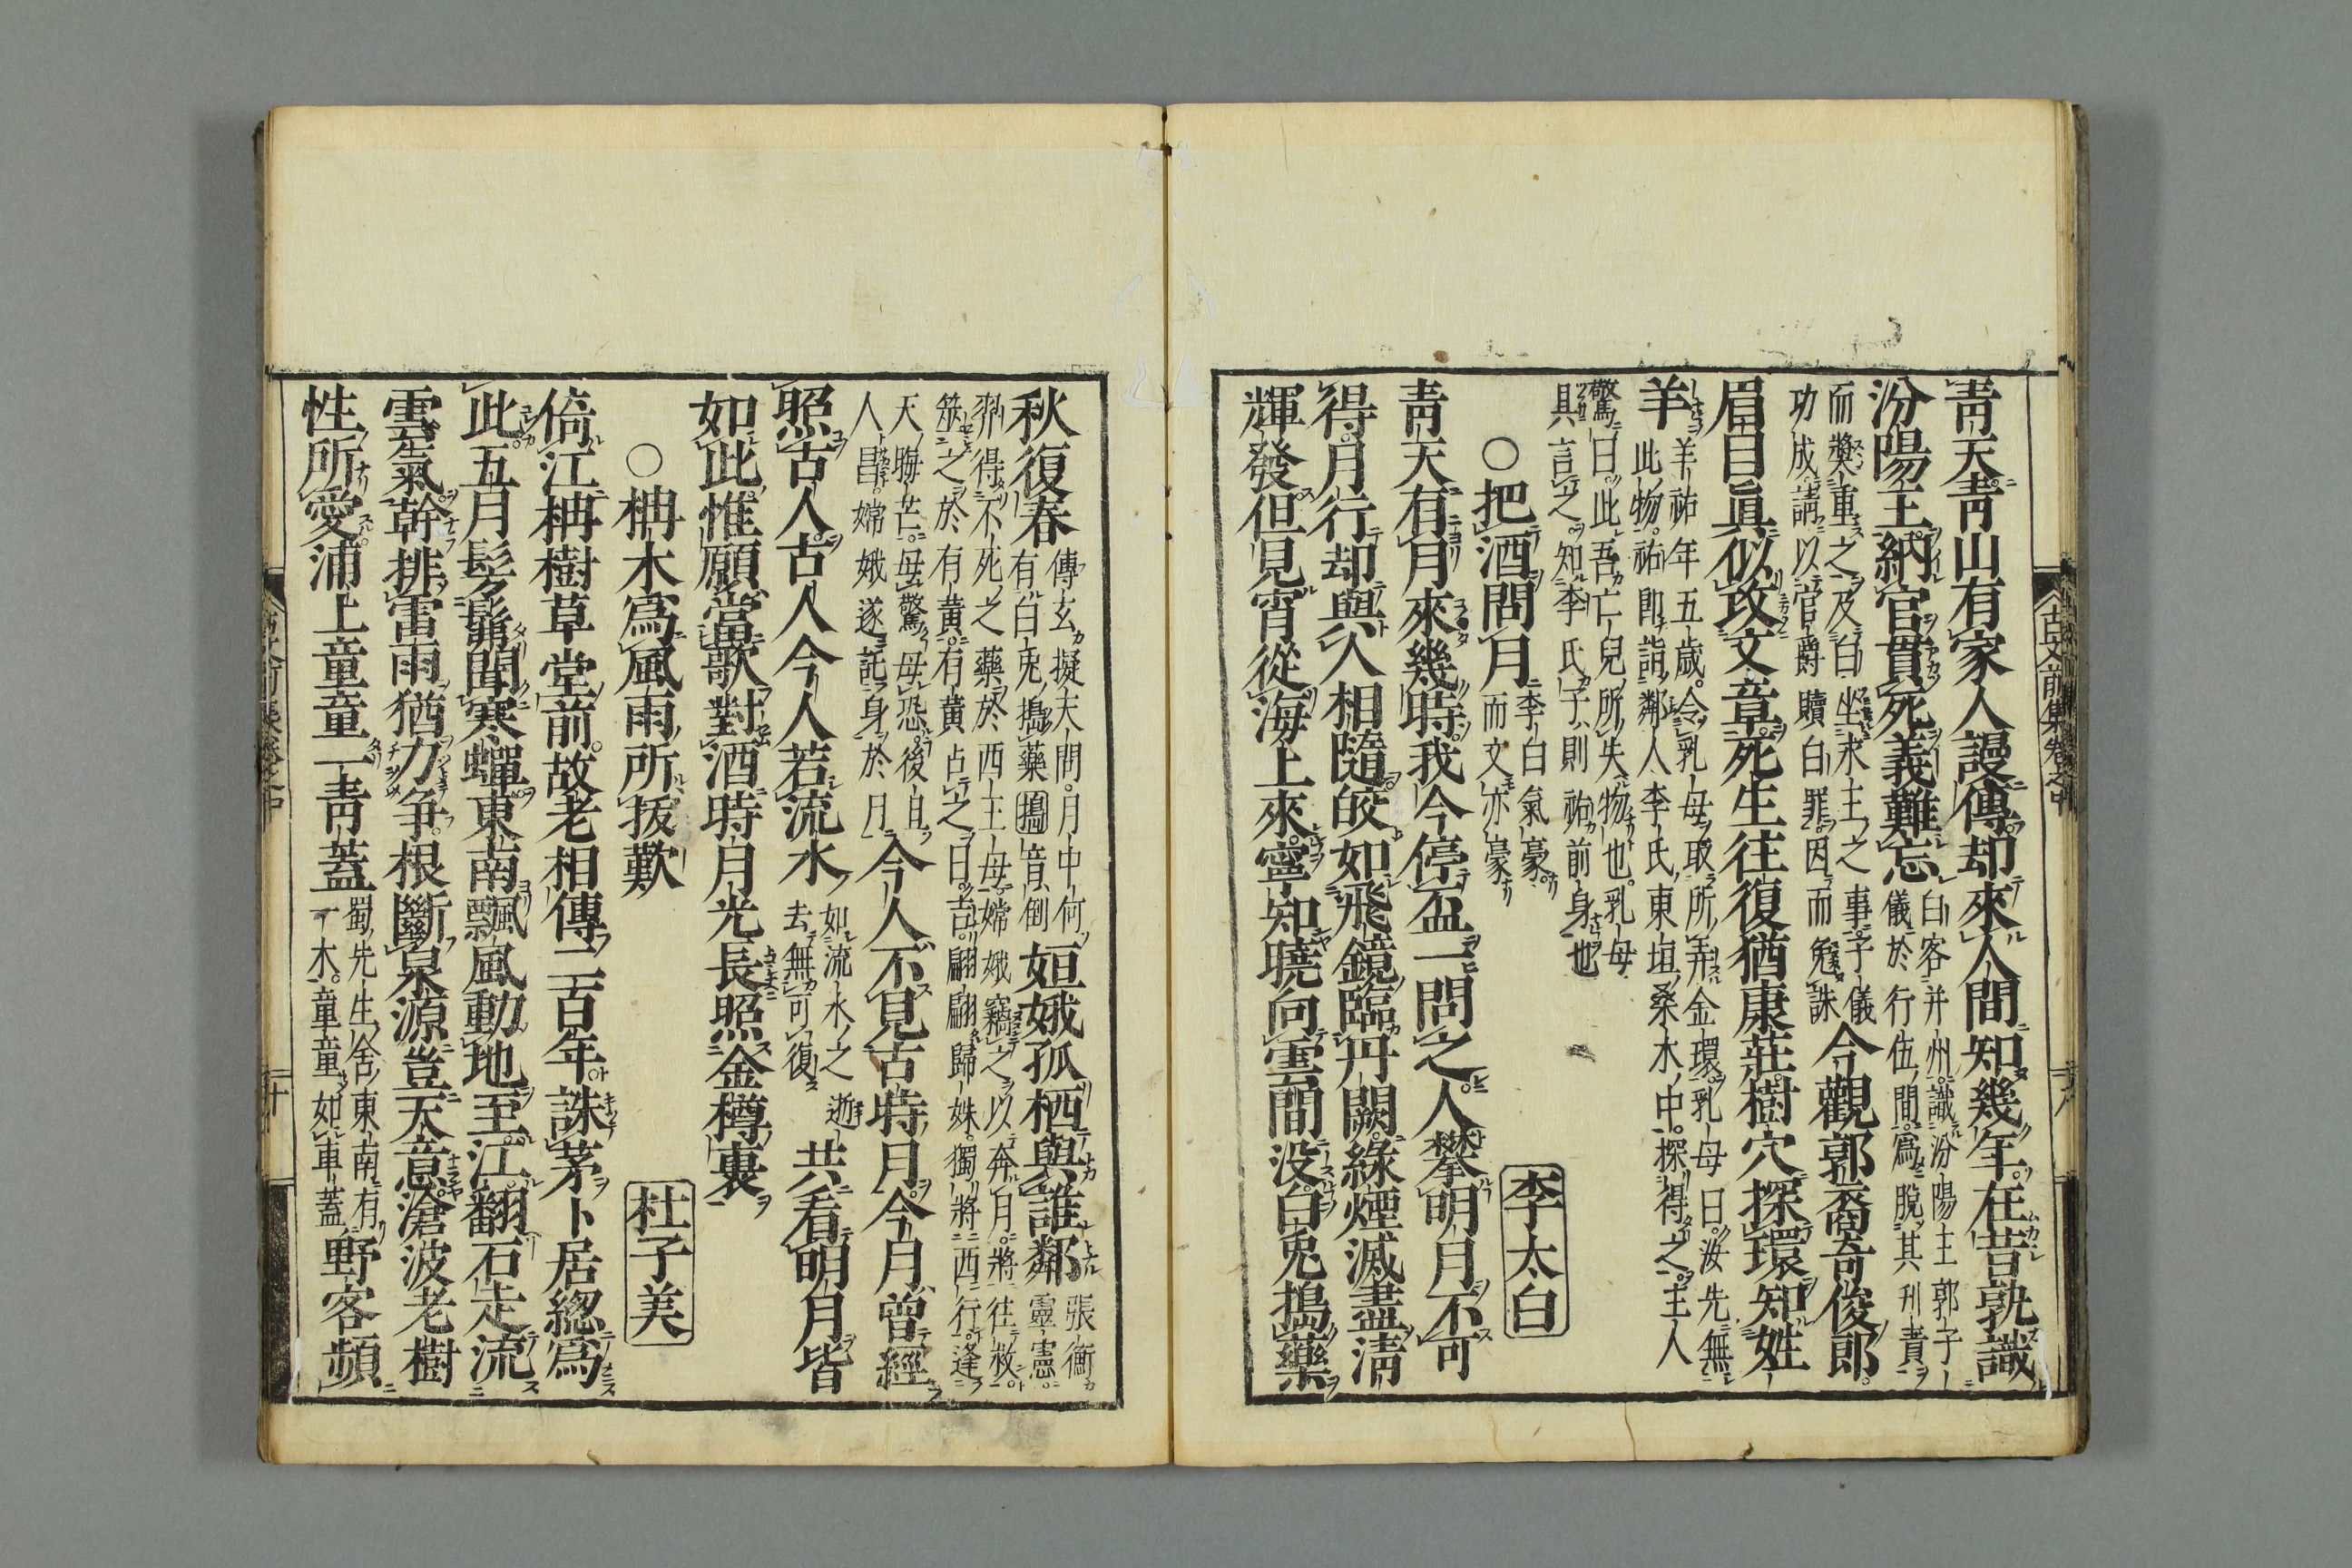 靑天靑山有家人謾傳却來人間知幾年在昔孰識
汾陽王納官貰死義難忘
白客并州識汾陽王郭子
儀於行伍間爲脫其刑責
而奬重之及白坐永王之事子儀
功成請以官爵贖白罪因而免誅
今觀郭裔奇俊郎
眉目眞似攻文章死生往復猶康莊樹穴探環知姓
羊
羊祜年五歲令乳母取所弄金環乳母曰汝先無
此物祜卽詣鄰人李氏東垣桑木中探得之主人
驚曰此吾亡兒所失物也乳母
具言之知李氏子則祜前身也
○把酒問月
李白氣豪
而文亦豪
李太白
靑天有月來幾時我今停盃一問之人攀明月不可
得月行却與人相隨皎如飛鏡臨丹闕綠煙滅盡淸
輝發但見宵從海上來寧知曉向雲間没白兎搗藥
古文前集卷之中
秋復春
傳玄擬天問月中何
有白兎搗藥搗音倒
姮娥孤栖與誰鄰
張衡
靈憲
羿得不死之藥於西王母嫦娥竊之以奔月將往枚
筮之於有黃有黃占之曰吉翩翩歸妹獨將西行逢
天晦芒母驚母恐後且
人昌嫦娥遂託身於月
今人不見古時月今月曾經
照古人古人今人若流水
如流水之逝
去無可復
共看明月皆
如此惟願當歌對酒時月光長照金樽裏
○枏木爲風雨所拔歎
杜子美
倚江枏樹草堂前故老相傳二百年誅茅卜居総爲
此五月髣髴聞寒蟬東南飄風動地至江翻石走流
雲氣幹排雷雨猶力争根斷泉源豈天意滄波老樹
性所愛浦上童童一靑蓋
蜀先生舍東南有
一木童童如車蓋
野客頻